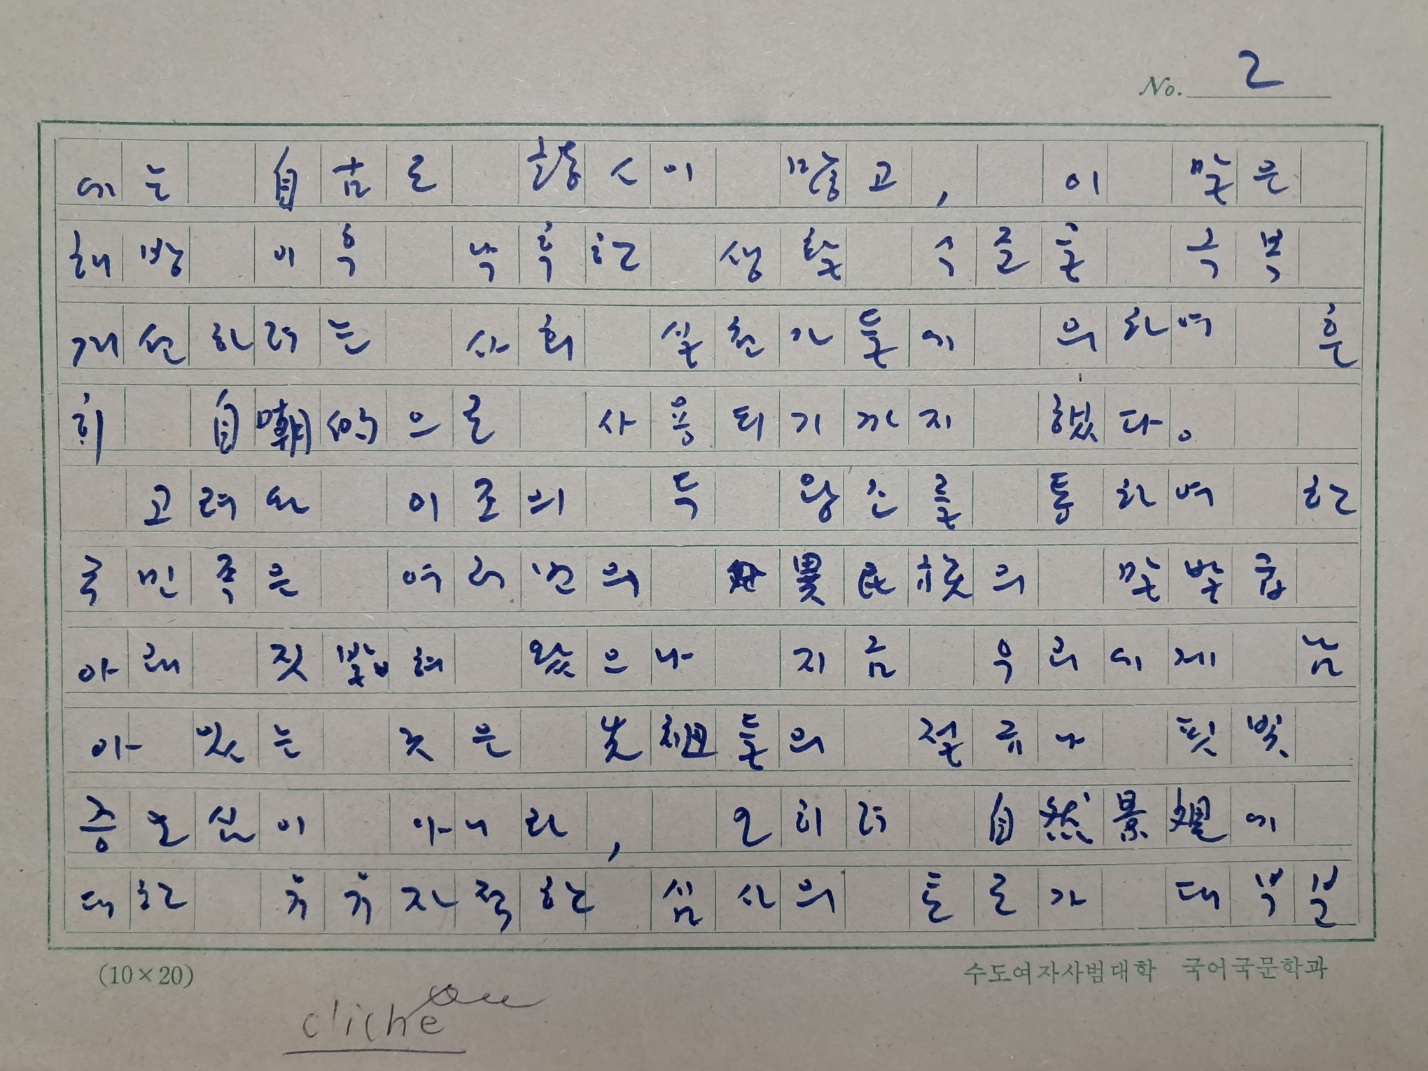 No. 2
에는 自古로 한숨이 많고, 이 맛은
해방 이후 낙후한 생활 수준을 극복
개선하려는 사회 실천가들에 의하여 흔
히 自嘲的으로 사용되기까지 했다.
고려와 이조의 두 왕조를 통하여 한
국민족은 여러번의 異民族의 말발굽
아래 짓밟혀 왔으나 지금 우리에게 남
아 있는 것은 先祖들의 절규나 핏빛
증오심이 아니라, 오히려 自然景觀에
대한 유유자적한 심사의 토로가 대부분
(10×20)
수도여자사범대학 국어국문학과
cliché